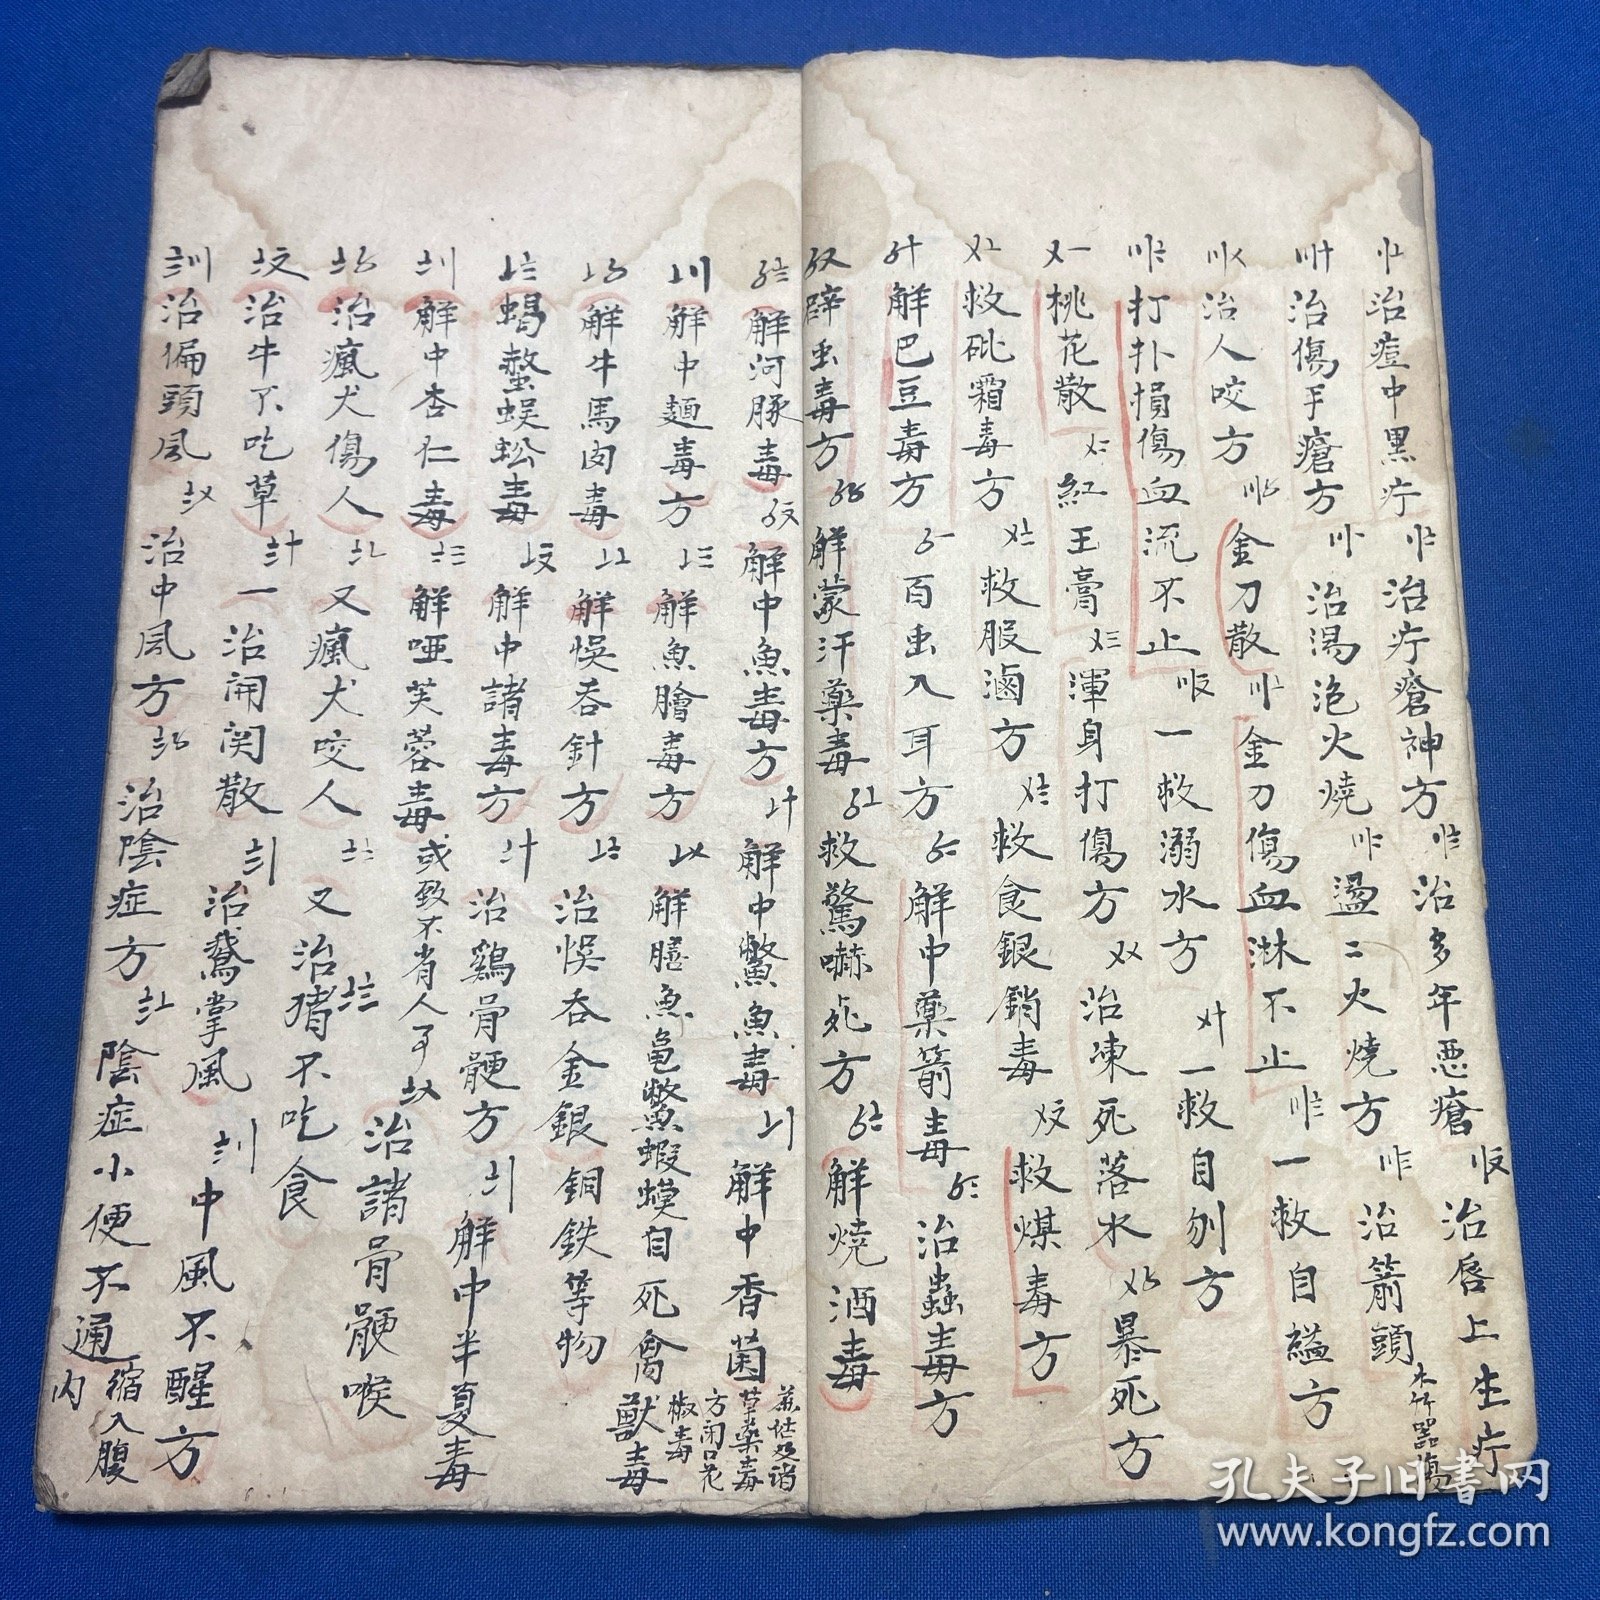 治痘中黑疔 治疔瘡神方 治多年恶瘡 治唇上生疔
治傷手瘡方 治湯泡火燒 盪二火燒方 治箭頭 木竹器傷
治人咬方 金刀散 金刀傷血淋不止 一救自縊方
打扑損傷血流不止 一救溺水方 一救自刎方
桃花散 紅玉膏 渾身打傷方 治凍死落水 暴死方
救砒霜毒方 救服滷方 救食銀銷毒 救煤毒方
解巴豆毒方 百虫入耳方 解中藥箭毒 治蟲毒方
辟虫毒方 解蒙汗藥毒 救驚嚇死方 解燒酒毒
解河豚毒 解中魚毒方 解中鱉魚毒 解中香菌
草藥毒
方闭口花
椒毒
解中麺毒方 解魚膾毒方 解膳魚黾鱉蝦蟆自死禽獸毒
解牛馬肉毒 解悮吞針方 治悮吞金銀銅鉄等物
蝎螫蜈蚣毒 解中諸毒方 治鷄骨骾方 解中半夏毒
解中杏仁毒 解哑芙蓉毒 或致不肖人事 治諸骨骾喉
治瘋犬傷人 又瘋犬咬人 又治猪不吃食
治牛不吃草 一治開関散 治鵞掌風 中風不醒方
治偏頭风 治中风方 治陰症方 陰症小便不通 縮入腹内
孔夫子旧书网
www.kongfz.com